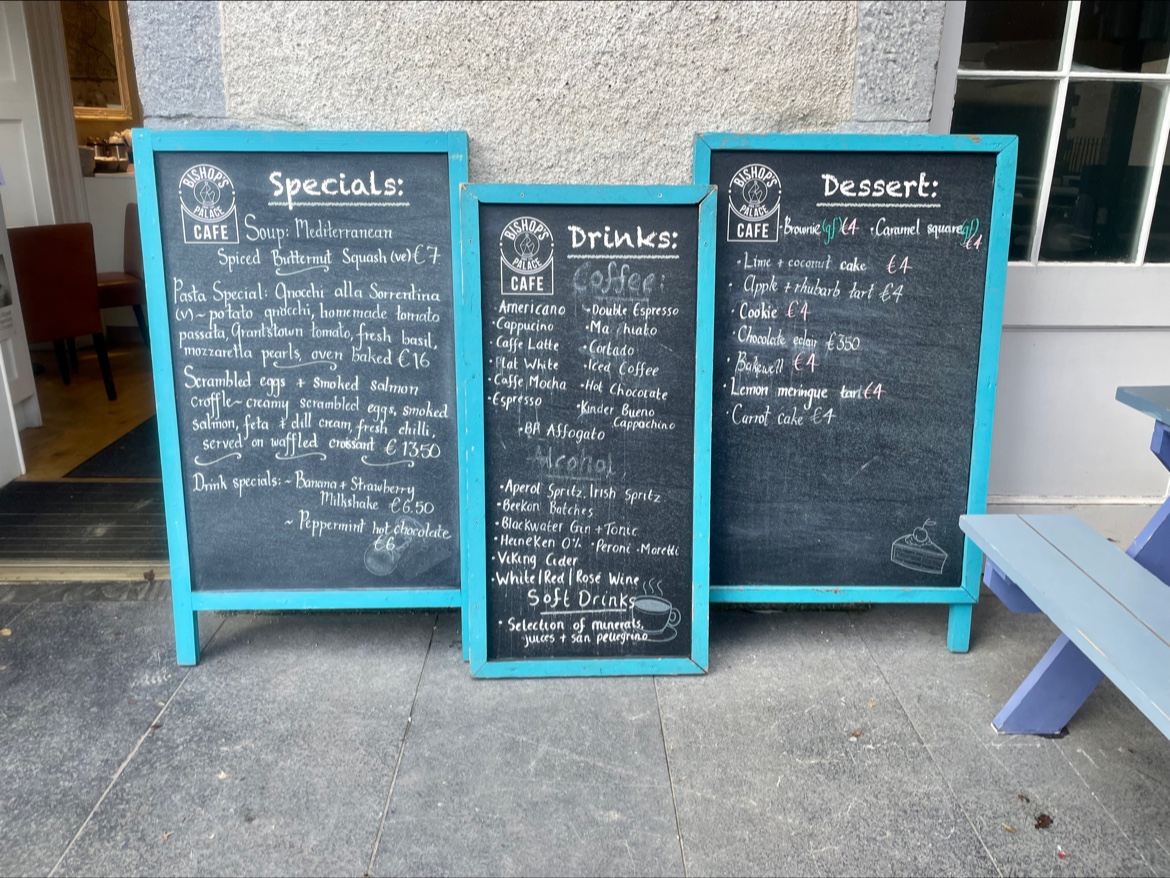 BISHOP'S
PALACE
CAFE
Specials:
Soup: Mediterranean
Spiced Butternut Squash (ve) €7
Pasta Special: Gnocchi alla Sorrentina
(v) ~ potato gnocchi, homemade tomato
passata, Grantstown tomato, fresh basil,
mozzarella pearls, oven baked €16
Scrambled eggs + smoked salmon
croffle ~ creamy scrambled eggs, smoked
salmon, feta + dill cream, fresh chilli,
served on waffled croissant €1350
Drink specials: ~ Banana + Strawberry
Milkshake €6.50
~ Peppermint hot chocolate
€6
BISHOP'S
PALACE
CAFE
Drinks:
Coffee:
Americano
•Cappucino
•Caffe Latte
•Flat White
•Caffe Mocha
•Espresso
•Double Espresso
•Ma hiato
•Cortado
•Iced Coffee
•Hot Chocolate
•Kinder Bueno
Cappachino
•BP Affogato
Alcohol
•Aperol Spritz, Irish Spritz
•Beekon Batches
•Blackwater Gin + Tonic
•Heineken 0% •Peroni •Moretti
•Viking Cider
•White|Red|Rosé Wine
Soft Drinks
• Selection of minerals,
juices + san pellegrino
BISHOP'S
PALACE
CAFE
Dessert:
•Brownie (gf) €4 •Caramel square (gf)
€4
•Lime + coconut cake €4
• Apple + rhubarb tart €4
•Cookie €4
•Chocolate eclair €350
•Bakewell €4
•Lemon meringue tart €4
•Carrot cake €4